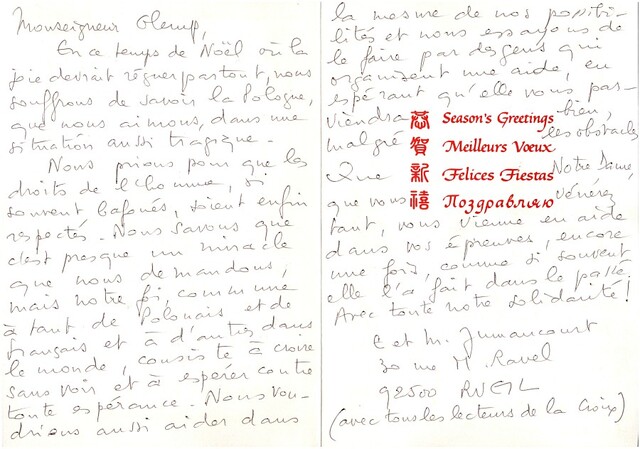 Monseigneur Glemp,
En ce temps de Noël où la
joie devrait régner partout, nous
souffrons de savoir la Pologne,
que nous aimons, dans une
situation aussi tragique.
Nous prions pour que les
droits de l'homme, si
souvent bafoués, soient enfin
respectés. Nous savons que
c'est presque un miracle
que nous demandons,
mais notre foi, commune
à tant de Polonais et de
français et à d'autres dans
le monde, consiste à croire
sans voir et à espérer contre
toute espérance. Nous vou-
drions aussi aider dans
la mesure de nos possibi-
lités et nous essayons de
le faire par des gens qui
organisent une aide, en
espérant qu'elle vous par-
viendra bien,
malgré les obstacles
Que Notre Dame,
que vous vénérez
tant, vous vienne en aide
dans vos épreuves, encore
une fois, comme si souvent
elle l'a fait dans le passé.
Avec toute notre solidarité!
C et M.
30 rue M. Ravel
92500 RUEIL
(avec tous les lecteurs de la Croix)
恭 Season's Greetings
賀 Meilleurs Vœux
新 Felices Fiestas
禧 Поздравляю